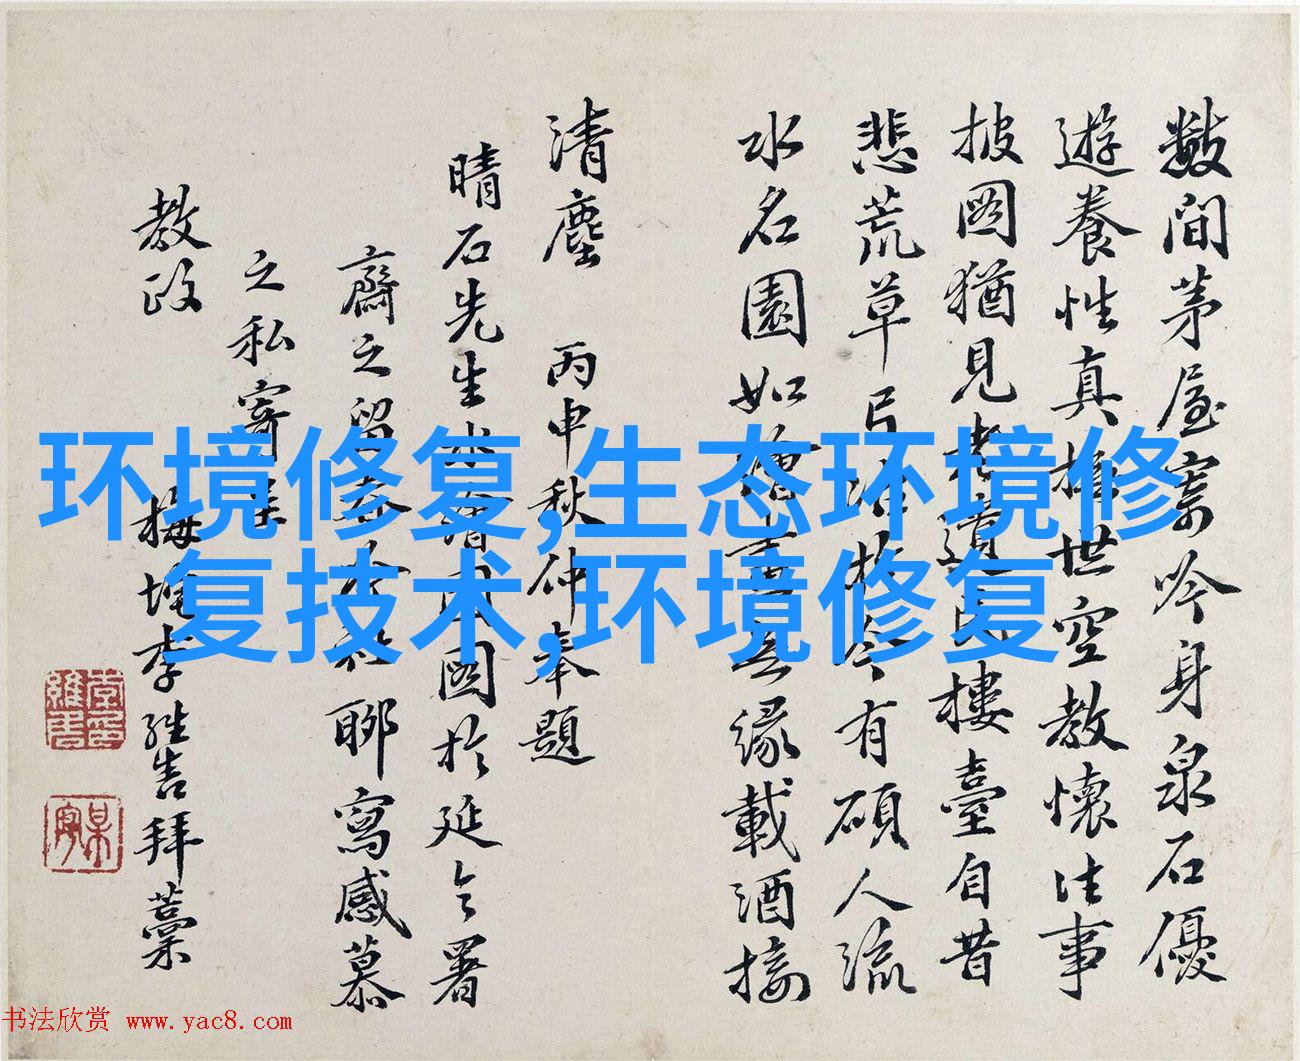 數間茅屋寄吟身泉石優
遊養性真世空教懷往事
披圖猶見老遺民樓臺自昔
悲荒草片沼於今有碩人流
水名園如繪畫無緣載酒接
清塵 丙申秋仲奉題
晴石先生水繪園圖於延令署
齋之留春聊寫感慕
之私寄呈
教政
梅李拜藁
环境修复,生态环境修
复技术,环境修复
书法欣赏 www.yac8.com